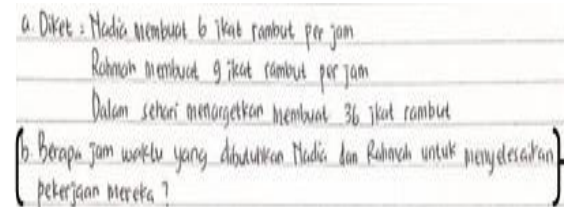 a. Diket : Nadia membuat 6 ikat rambut per jam
Rahmah membuat 9 ikat rambut per jam
Dalam sehari menargetkan membuat 36 ikat rambut
b. Berapa jam waktu yang dibutuhkan Nadia dan Rahmah untuk menyelesaikan
pekerjaan mereka ?